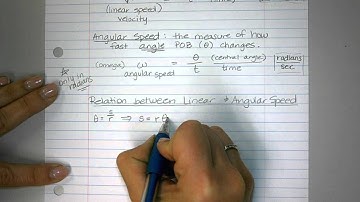 (linear speed) time sec
velocity
Angular Speed : the measure of how
fast angle POB (θ) changes.
(omega) ω = θ (central angle) radians
angular speed t time sec
☆ only in radians
Relation between Linear & Angular Speed
θ = s/r ⇒ s = rθ